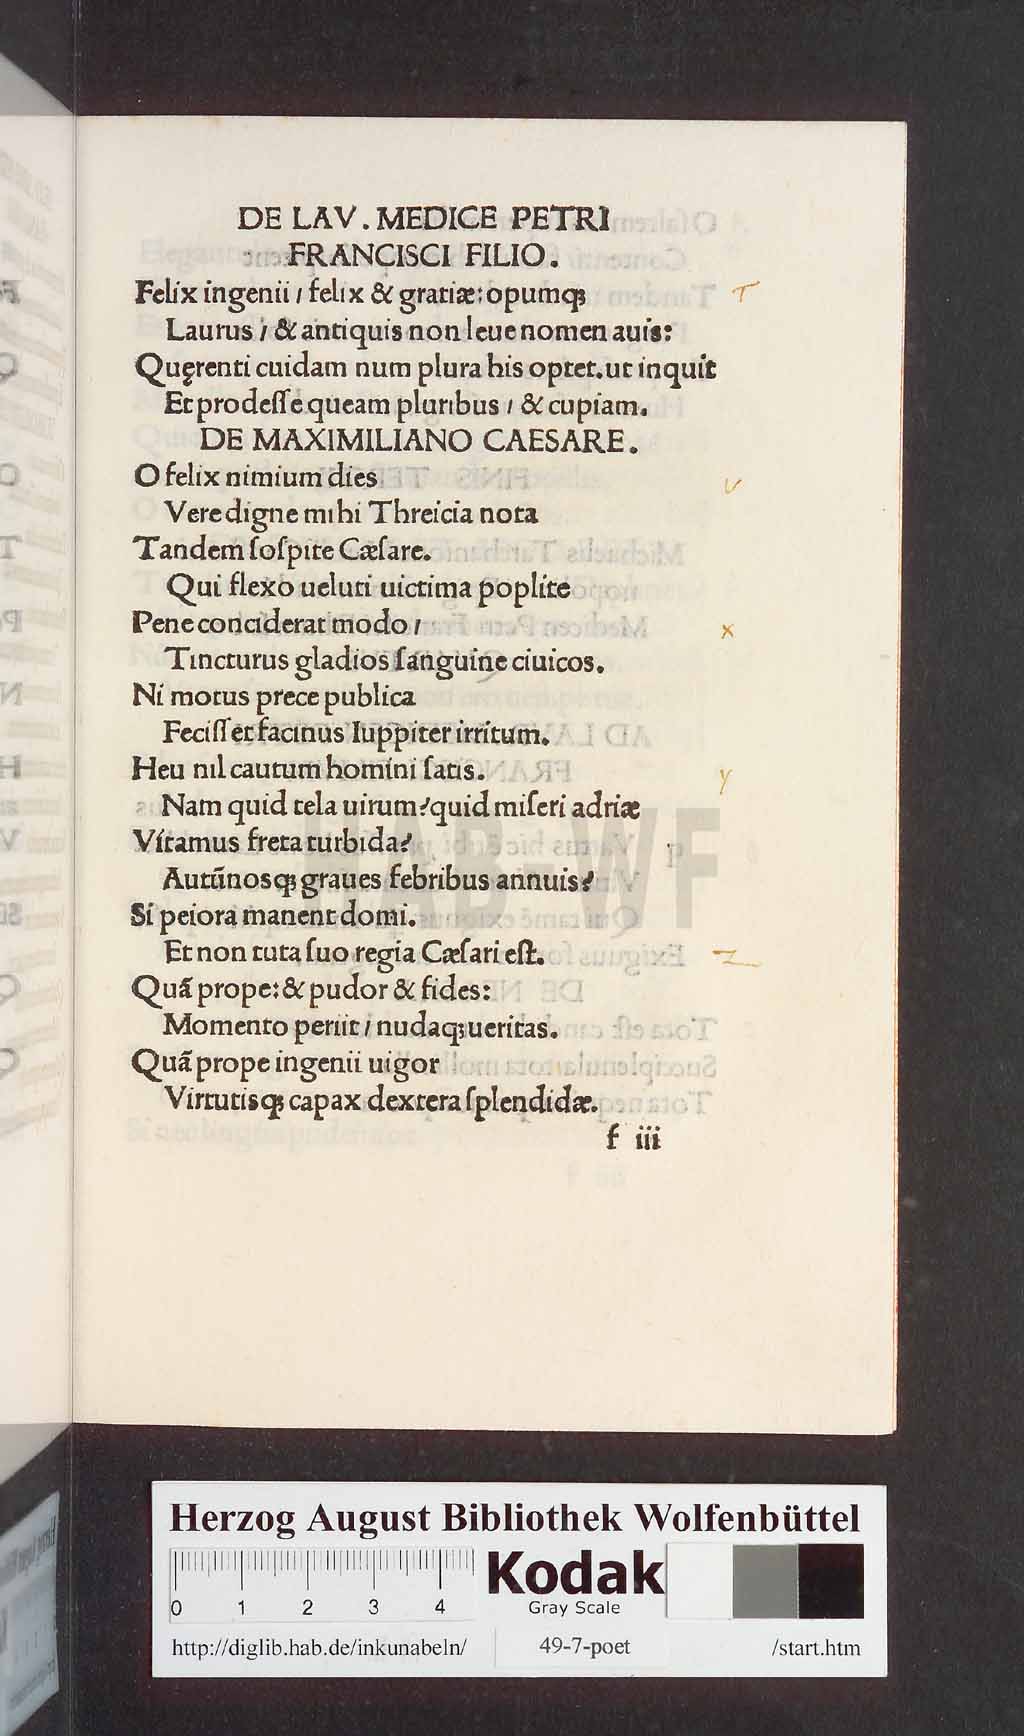 DE LAV. MEDICE PETRI
FRANCISCI FILIO.
Felix ingenii / felix & gratiæ: opumqꝫ
Laurus / & antiquis non leue nomen auis:
Quęrenti cuidam num plura his optet. ut inquit
Et prodeſſe queam pluribus / & cupiam.
DE MAXIMILIANO CAESARE.
O felix nimium dies
Vere digne mihi Threicia nota
Tandem ſoſpite Cæſare.
Qui flexo ueluti uictima poplite
Pene conciderat modo /
Tincturus gladios ſanguine ciuicos.
Ni motus prece publica
Feciſſet facinus Iuppiter irritum.
Heu nil cautum homini ſatis.
Nam quid tela uirum? quid miſeri adriæ
Vitamus freta turbida?
Autūnosqꝫ graues febribus annuis?
Si peiora manent domi.
Et non tuta ſuo regia Cæſari eſt.
Quā prope: & pudor & fides:
Momento periit / nudaqꝫ ueritas.
Quā prope ingenii uigor
Virtutisqꝫ capax dextera ſplendidæ.
f iii
T
v
x
y
z
HAB-WF
Herzog August Bibliothek Wolfenbüttel
0 1 2 3 4
Kodak
Gray Scale
http://diglib.hab.de/inkunabeln/ 49-7-poet /start.htm